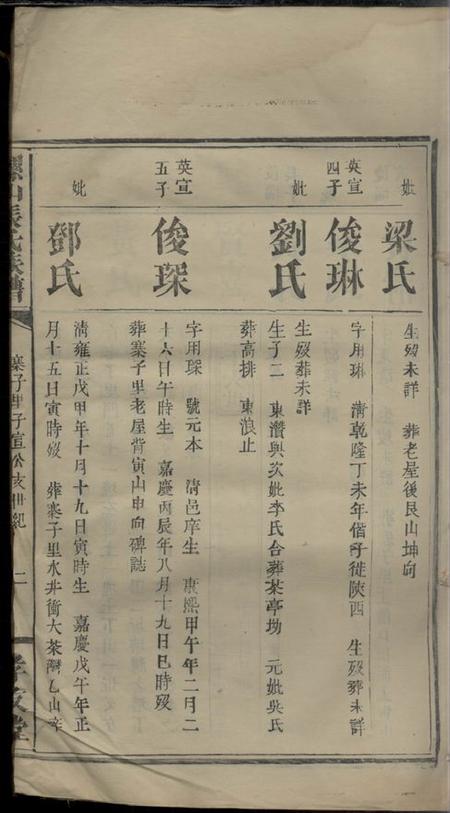 妣
梁氏
生歿未詳 葬老屋後艮山坤向
英宣四子
俊琳
字用琳 清乾隆丁未年偕子徙陝西 生歿葬未詳
妣
劉氏
生歿葬未詳
生子二 東瀠與次妣李氏合葬茶亭坳 元妣吳氏
葬高排 東浪止
英宣五子
俊琛
字用琛 號元本 清邑庠生 康熙甲午年二月二
十六日午時生 嘉慶丙辰年八月十九日巳時歿
葬寨子里老屋背寅山申向碑誌
妣
鄧氏
清雍正戊甲年十月十九日寅時生 嘉慶戊午年正
月十五日寅時歿 葬寨子里水井衝大茶灣乙山辛
山張氏族譜
寨子里子宣公亥世紀
二
孝友堂